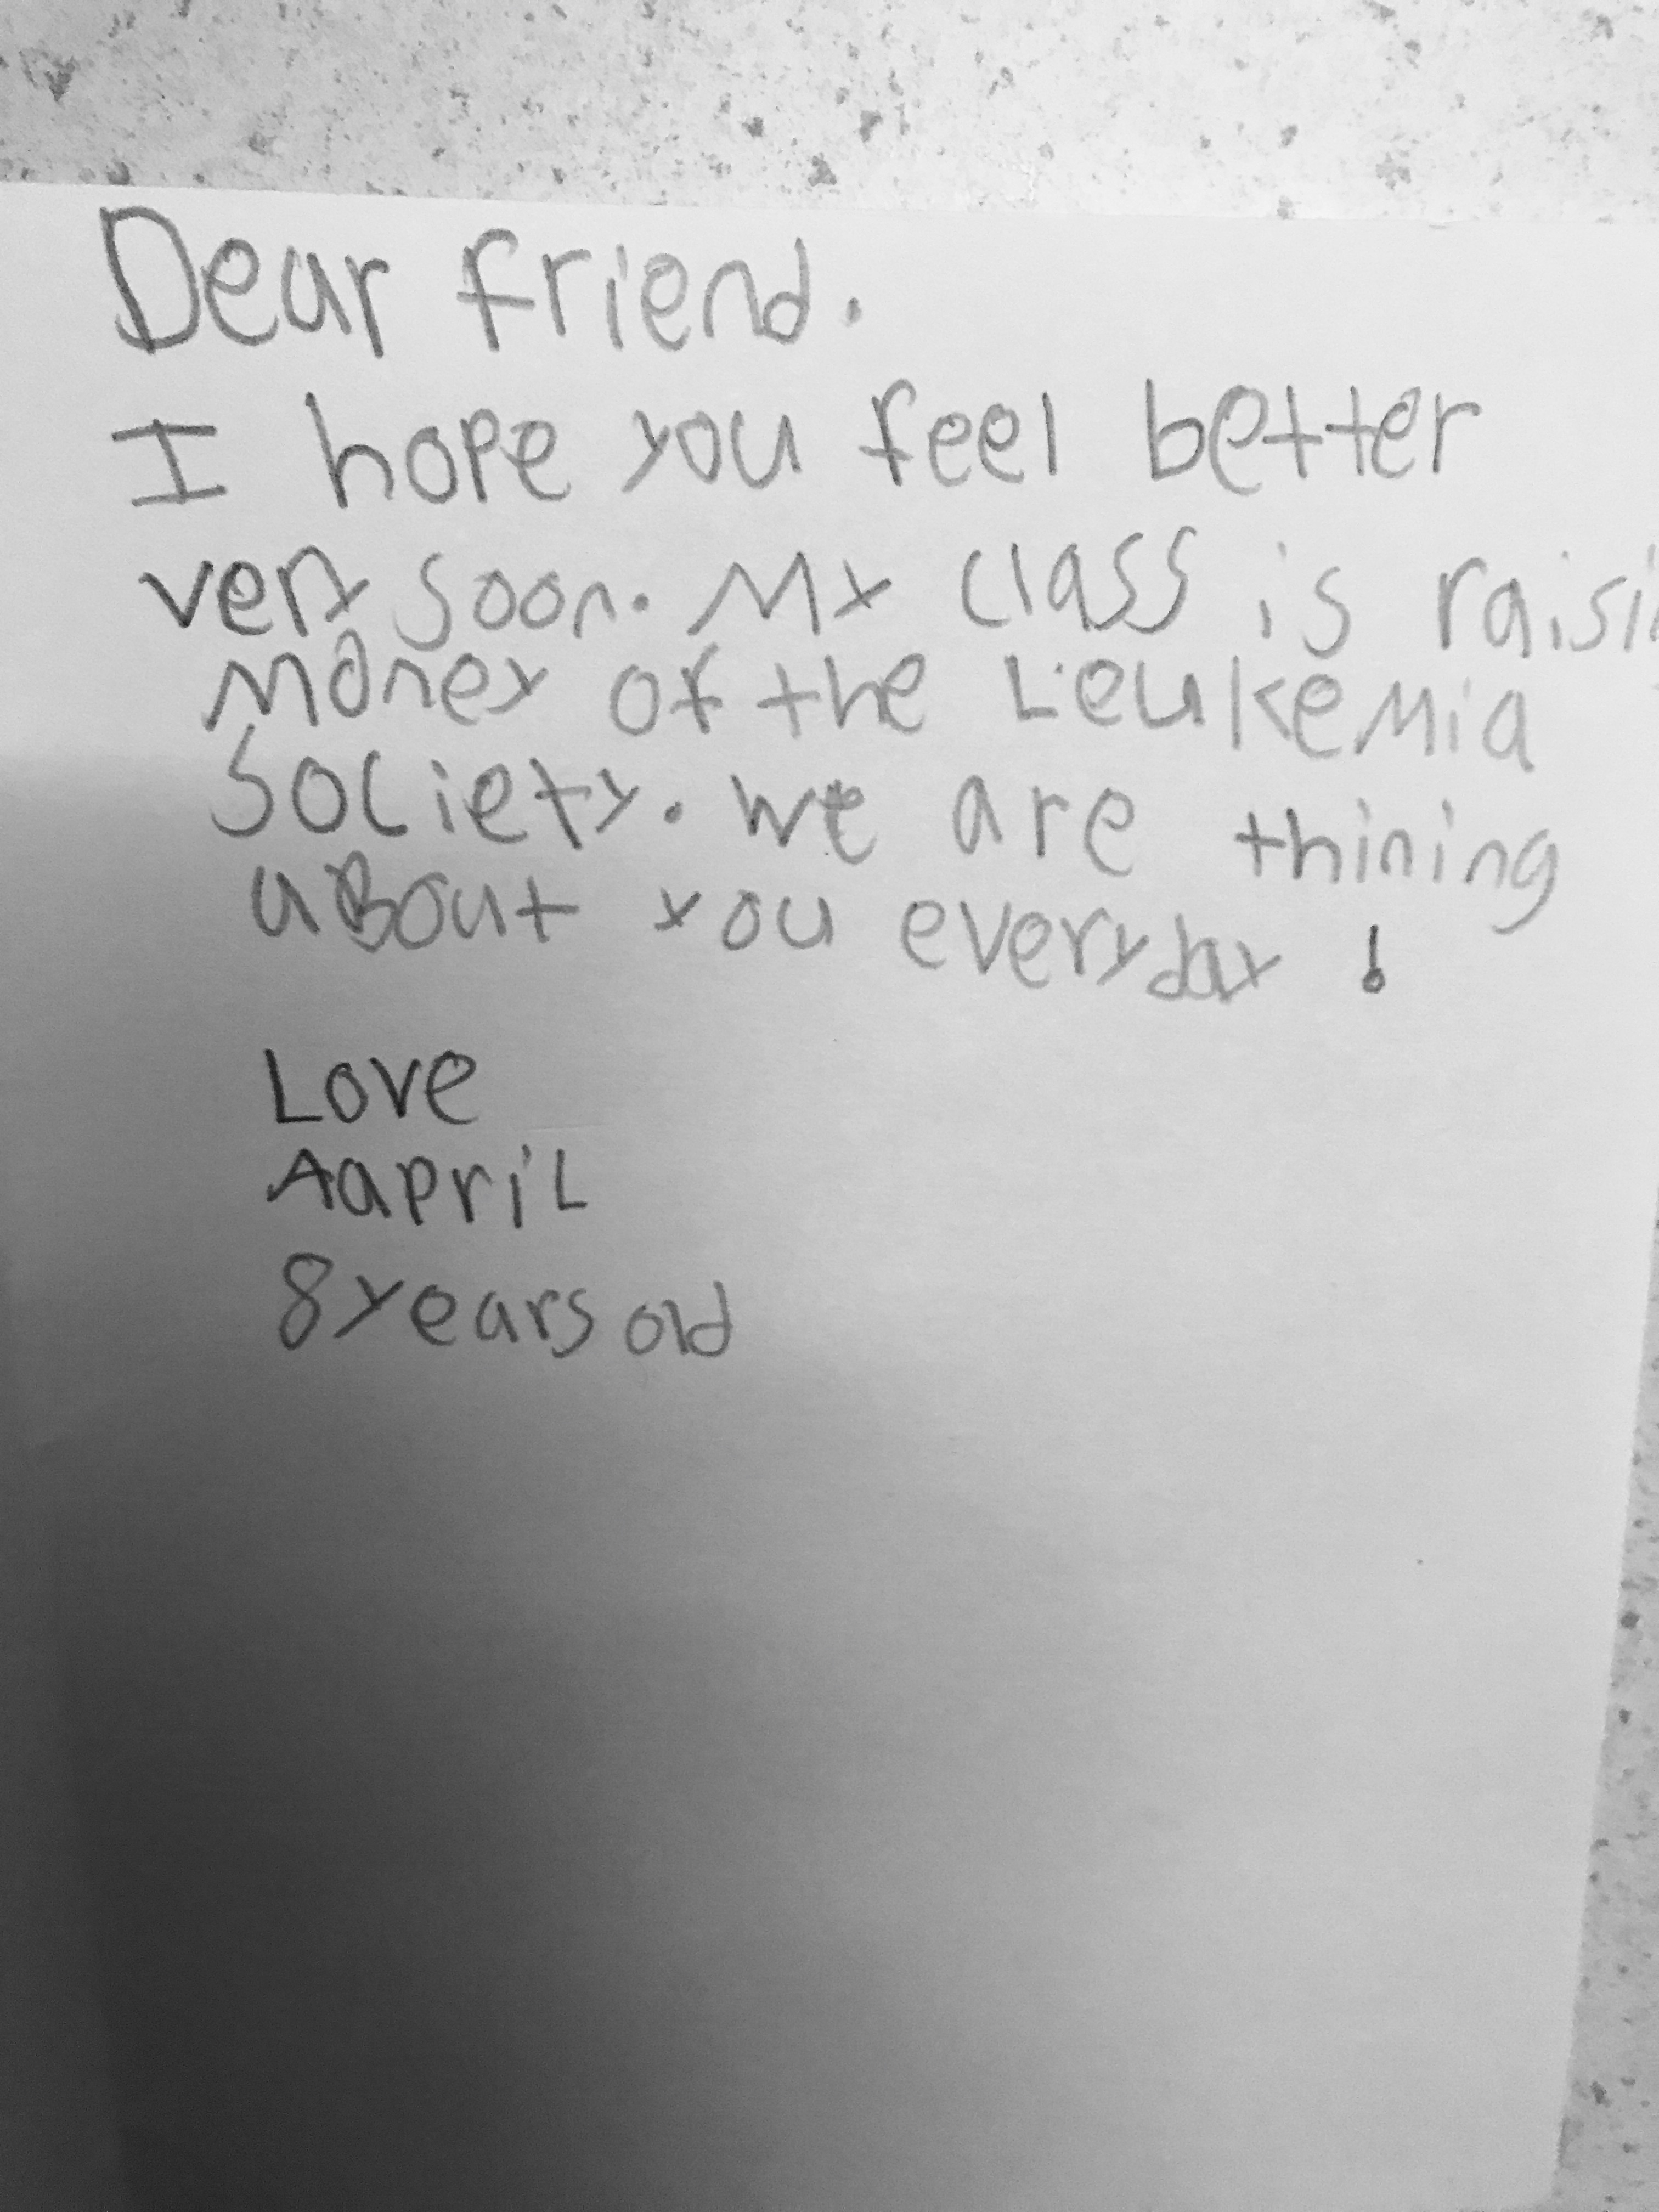 Dear friend.
I hope you feel better
very soon. My class is raisi
money of the Leukemia
Society. We are thining
aBout you everyday !
Love
AapriL
8 years old